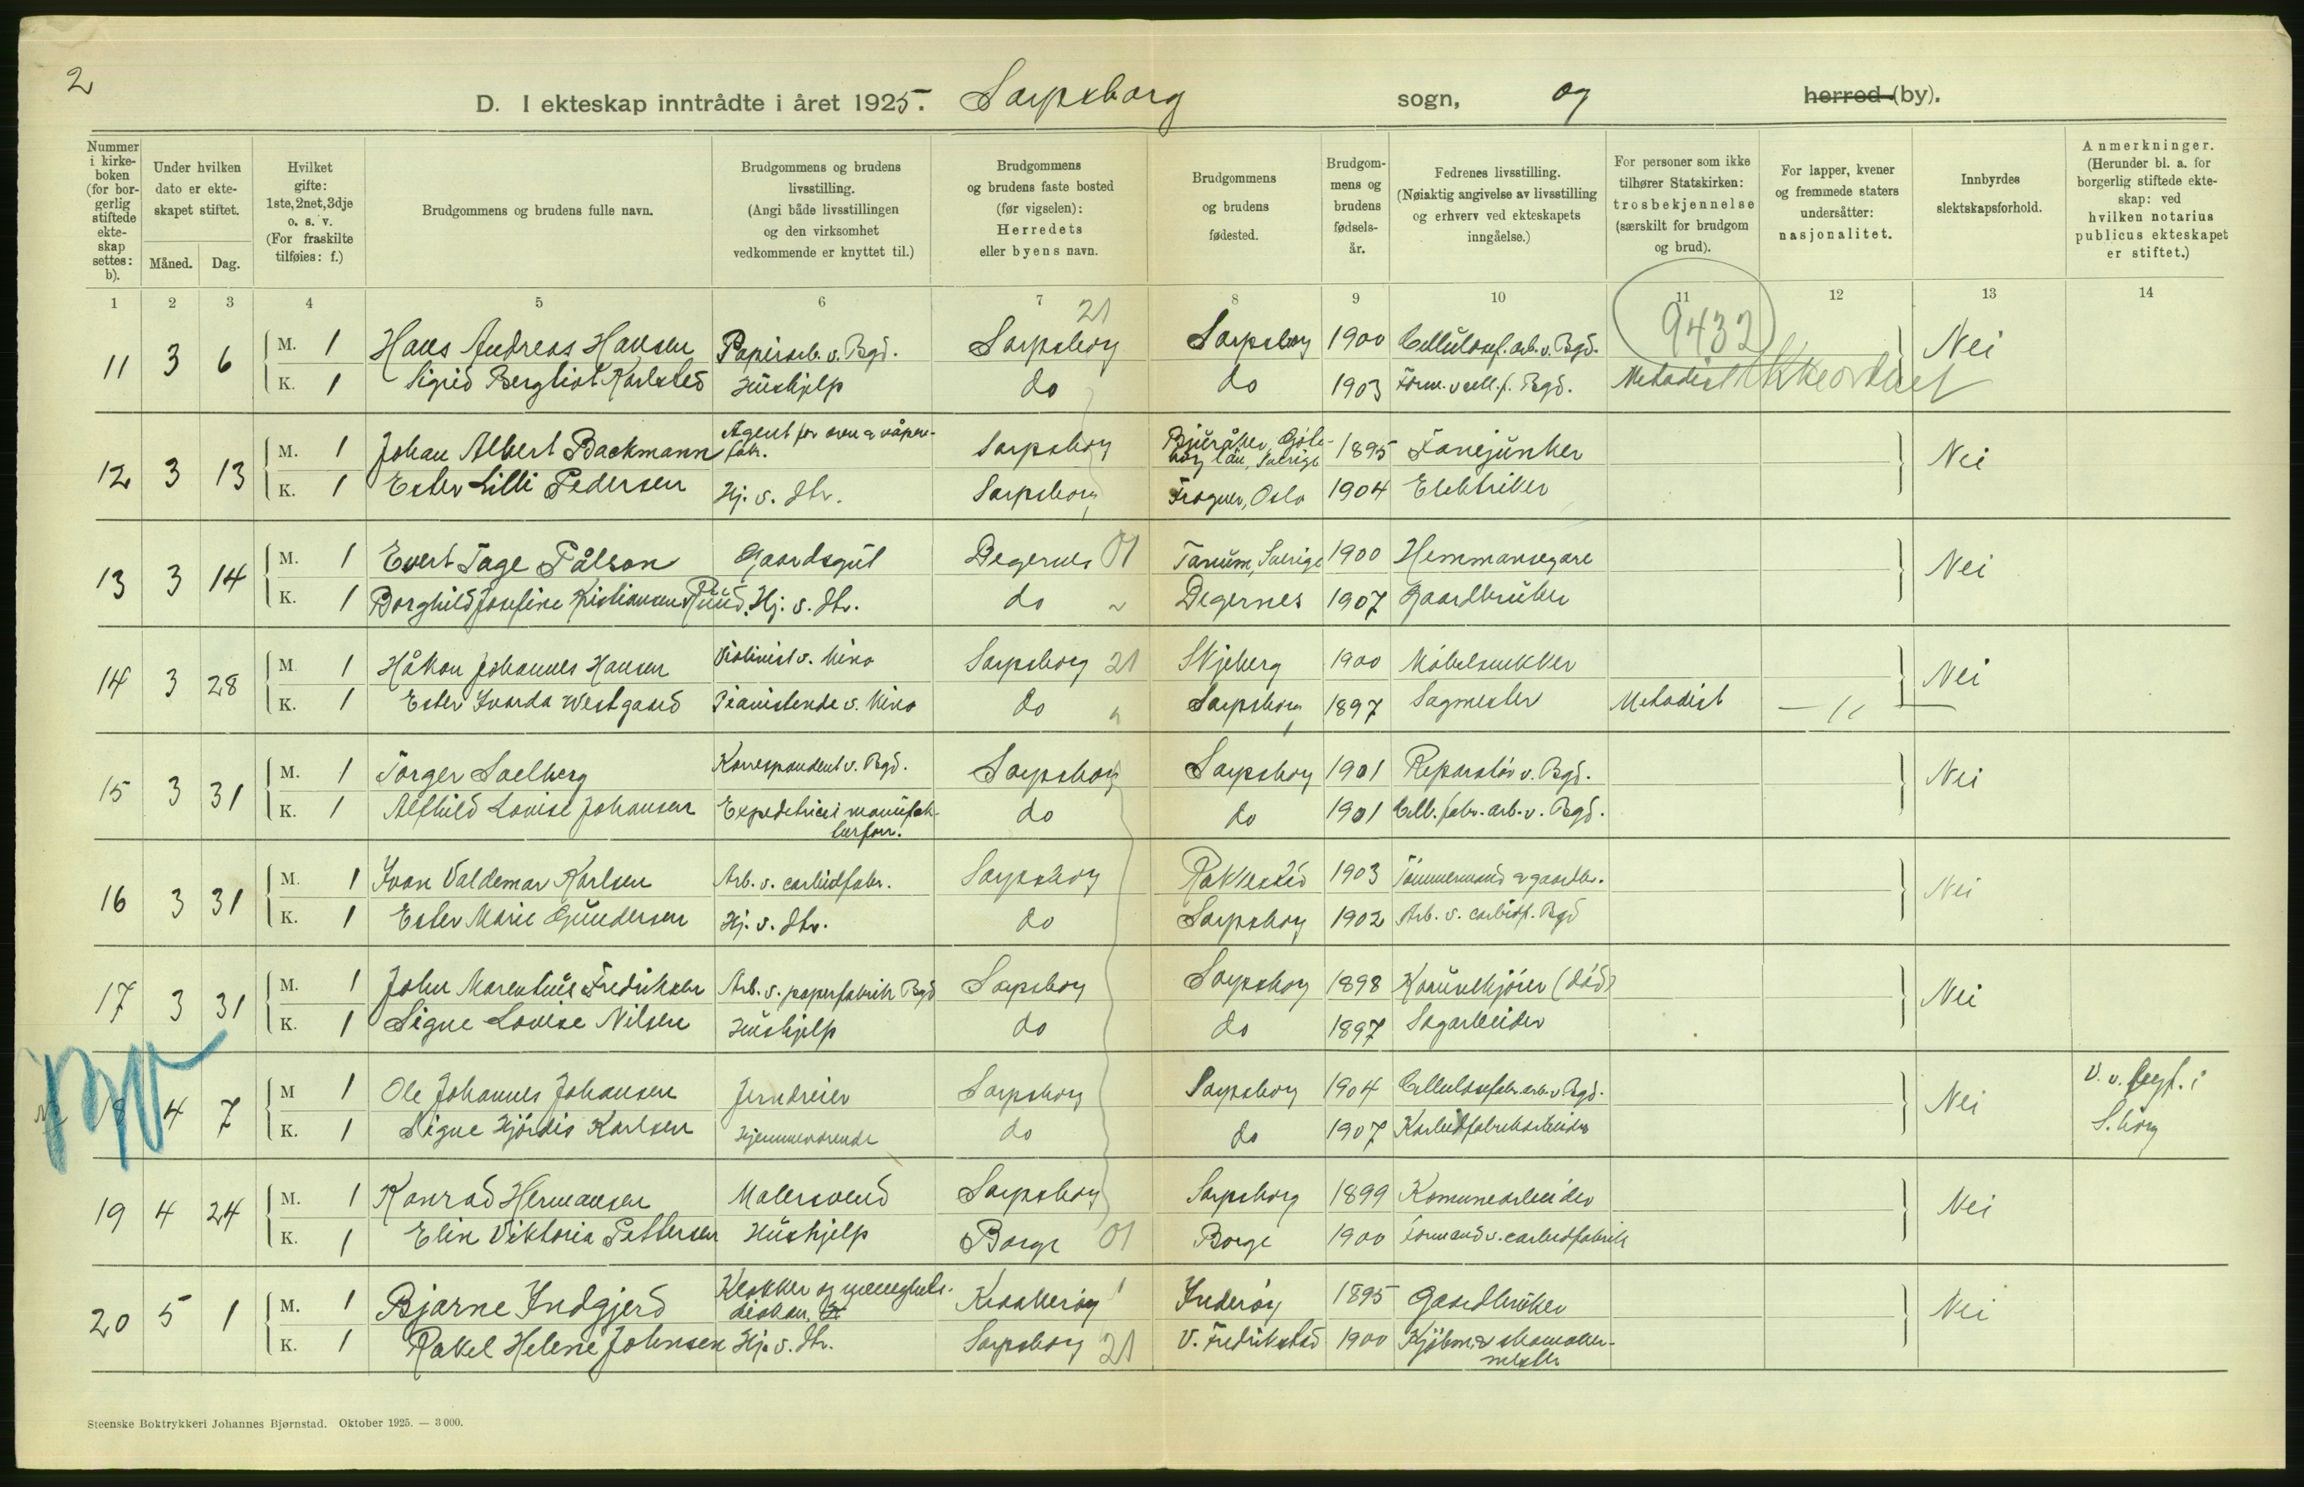 2
D. I ekteskap inntrådte i året 1925. Sarpsborg sogn, og herred (by).
Nummer i kirkeboken (for borgerlig stiftede ekteskap settes: b).
Under hvilken dato er ekteskapet stiftet.
Måned. Dag.
Hvilket gifte: 1ste, 2net, 3dje o. s. v. (For fraskilte tilføies: f.)
Brudgommens og brudens fulle navn.
Brudgommens og brudens livsstilling. (Angi både livsstillingen og den virksomhet vedkommende er knyttet til.)
Brudgommens og brudens faste bosted (før vigselen): Herredets eller byens navn.
Brudgommens og brudens fødested.
Brudgommens og brudens fødselsår.
Fedrenes livsstilling. (Nøiaktig angivelse av livsstilling og erhverv ved ekteskapets inngåelse.)
For personer som ikke tilhører Statskirken: trosbekjennelse (særskilt for brudgom og brud).
For lapper, kvener og fremmede staters undersåtter: nasjonalitet.
Innbyrdes slektskapsforhold.
Anmerkninger. (Herunder bl. a. for borgerlig stiftede ekteskap: ved hvilken notarius publicus ekteskapet er stiftet.)
1 2 3 4 5 6 7 8 9 10 11 12 13 14
21 9432
11 3 6 M. 1 Hans Andreas Hansen Papirarb. v. Bgd. Sarpsborg Sarpsborg 1900 Cellulosef. arb. v. Bgd. Nei
K. 1 Sigrid Bergliot Karlsted Hushjelp do do 1903 Form. v cell. f. Bgd. Metodist Ikke ordnet
12 3 13 M. 1 Johan Albert Backmann Agent for ovn a våpenfabr. Sarpsborg Bjuråker, Göteborg län, Sverige 1895 Fanejunker Nei
K. 1 Ester Lilli Pedersen Hj. v. Str. Sarpsborg Frogner, Oslo 1904 Elektriker
13 3 14 M. 1 Evert Tage Pålson Gaardsgut Degernes 01 Tanum, Sverige 1900 Hemmansegare Nei
K. 1 Borghild Josefine Kristiansen Ruud. Hj. v. Str. do Degernes 1907 Gaardbruker
14 3 28 M. 1 Håkon Johannes Hansen Violinist v. kino Sarpsborg 21 Skjeberg 1900 Möbelsnekker Nei
K. 1 Ester Ivarda Westgaard Pianistende v. kino do Sarpsborg 1897 Sagmester Metodist — 11 —
15 3 31 M. 1 Torger Solberg Korrespondent v. Bgd. Sarpsborg Sarpsborg 1901 Reparatör v. Bgd. Nei
K. 1 Alfhild Lovise Johansen Expeditrice i manufakturforr. do do 1901 Cell. fabr. arb. v. Bgd.
16 3 31 M. 1 Ivan Valdemar Karlsen Arb. v. carbidfabr. Sarpsborg Rakkestad 1903 Tömmermand a gaardbr. Nei
K. 1 Ester Marie Gundersen Hj. v. Str. do Sarpsborg 1902 Arb. v. carbidf. Bgd
17 3 31 M. 1 John Marentius Fredriksen Arb. v. papirfabrik Bgd Sarpsborg Sarpsborg 1898 (död) Nei
K. 1 Signe Lovise Nilsen Hushjelp do do 1897 Sagarbeider
18 4 7 M 1 Ole Johannes Johansen Jerndreier Sarpsborg Sarpsborg 1904 Cellulosefabr. arb. v Bgd. Nei V. v. byf. i S.borg
K. 1 Signe Hjördis Karlsen Hjemmeværende do do 1907 Karbidfabrikarbeider
19 4 24 M. 1 Konrad Hermansen Malersvend Sarpsborg Sarpsborg 1899 Komunearbeider Nei
K. 1 Elin Viktoria Pettersen Hushjelp Borge 01 Borge 1900 Formand v. carbidfabrik
20 5 1 M. 1 Bjarne Indgjerd Klokker og menighetsdiakon Kraakerøy 1 Inderöy 1895 Gaardbruker Nei
K. 1 Rakel Helene Johnsen Hj. v. Str. Sarpsborg 21 V. Fredrikstad 1900 Kjöbm. a skomakermester
Steenske Boktrykkeri Johannes Bjørnstad. Oktober 1925. — 3 000.